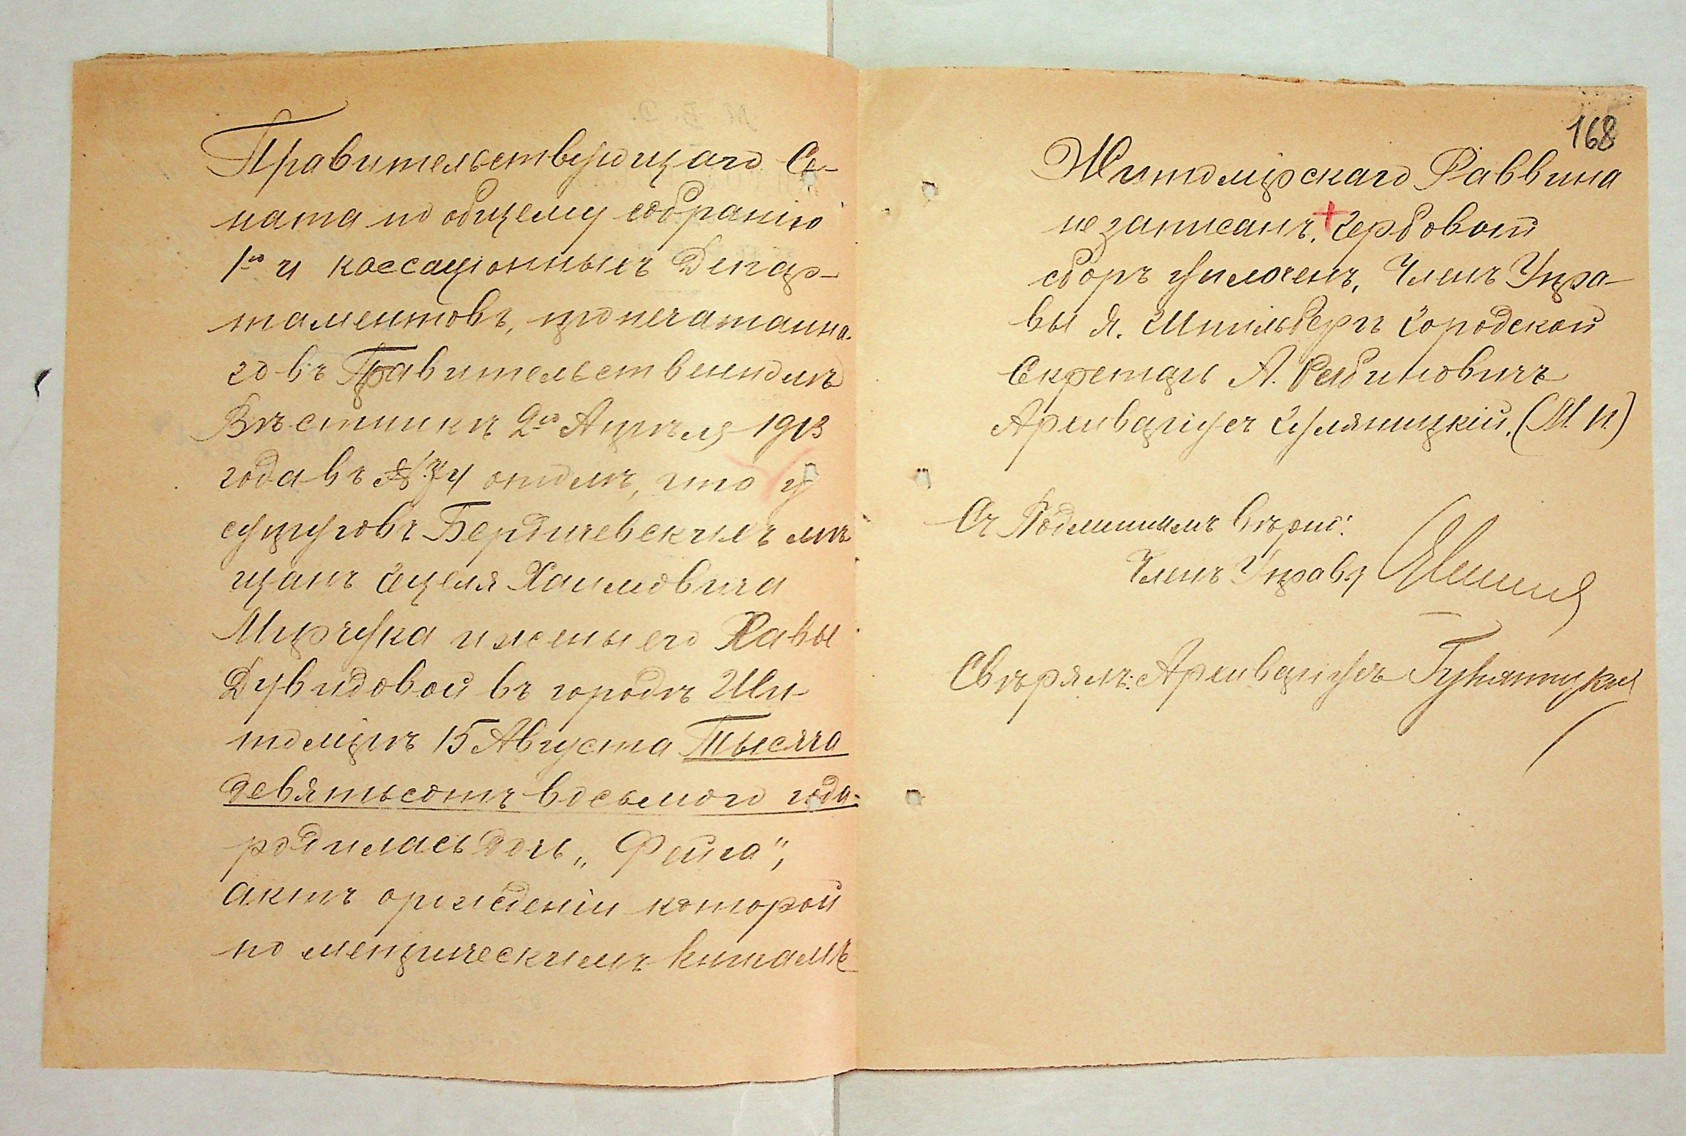 Правительствующаго Се-
ната по общему собранію
1го и кассаціонныхъ Депар-
таментовъ, пропечатанна-
го въ Правительственномъ
Вѣстникѣ 2го Апрѣля 1913
года въ № 74 о томъ, что у
супруговъ Бердичевскихъ мѣ-
щанъ Ицеля Хаимовича
и жены его Хавы
Дувидовой въ городѣ Жи-
томирѣ 15 Августа Тысяча
девятьсотъ восьмого года
родилась дочь „Фейга“,
актъ о рожденіи которой
по метрическимъ книгамъ
168
Житомірскаго Раввина
не записанъ. Гербовой
сборъ уплоченъ, Членъ Упра-
вы Я. Городской
Секретарь А. Рабиновичъ
Архиваріусъ (М. П)
Съ Подлиннымъ вѣрно:
Членъ Управы
Свѣрялъ: Архиваріусъ